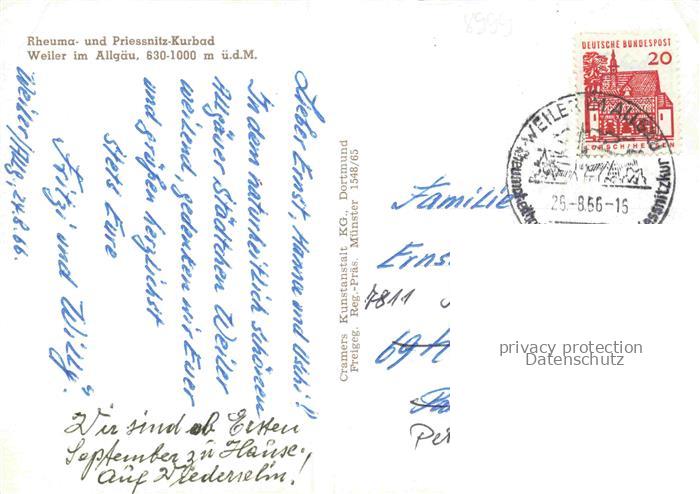 Rheuma- und Priessnitz-Kurbad
Weiler im Allgäu, 630-1000 m ü.d.M.
Weiler/Allg., 24.8.66.
Lieber Ernst, Hanna und Uschi!
In dem naturheitlich schönen
Allgäuer Städtchen Weiler
weilend, gedenken wir Euer
und grüßen herzlichst
stets Eure
Fritzi und Willy.
Wir sind ab Ersten
September zu Hause,
Auf Wiedersehn!
Cramers Kunstanstalt KG., Dortmund
Freigeg. Reg.-Präs. Münster 1548/65
DEUTSCHE BUNDESPOST
20
LORSCH/HESSEN
WEILER IM ALLGÄU
26.-8.66-16
Familie
Erns
7811
69
Per
privacy protection
Datenschutz